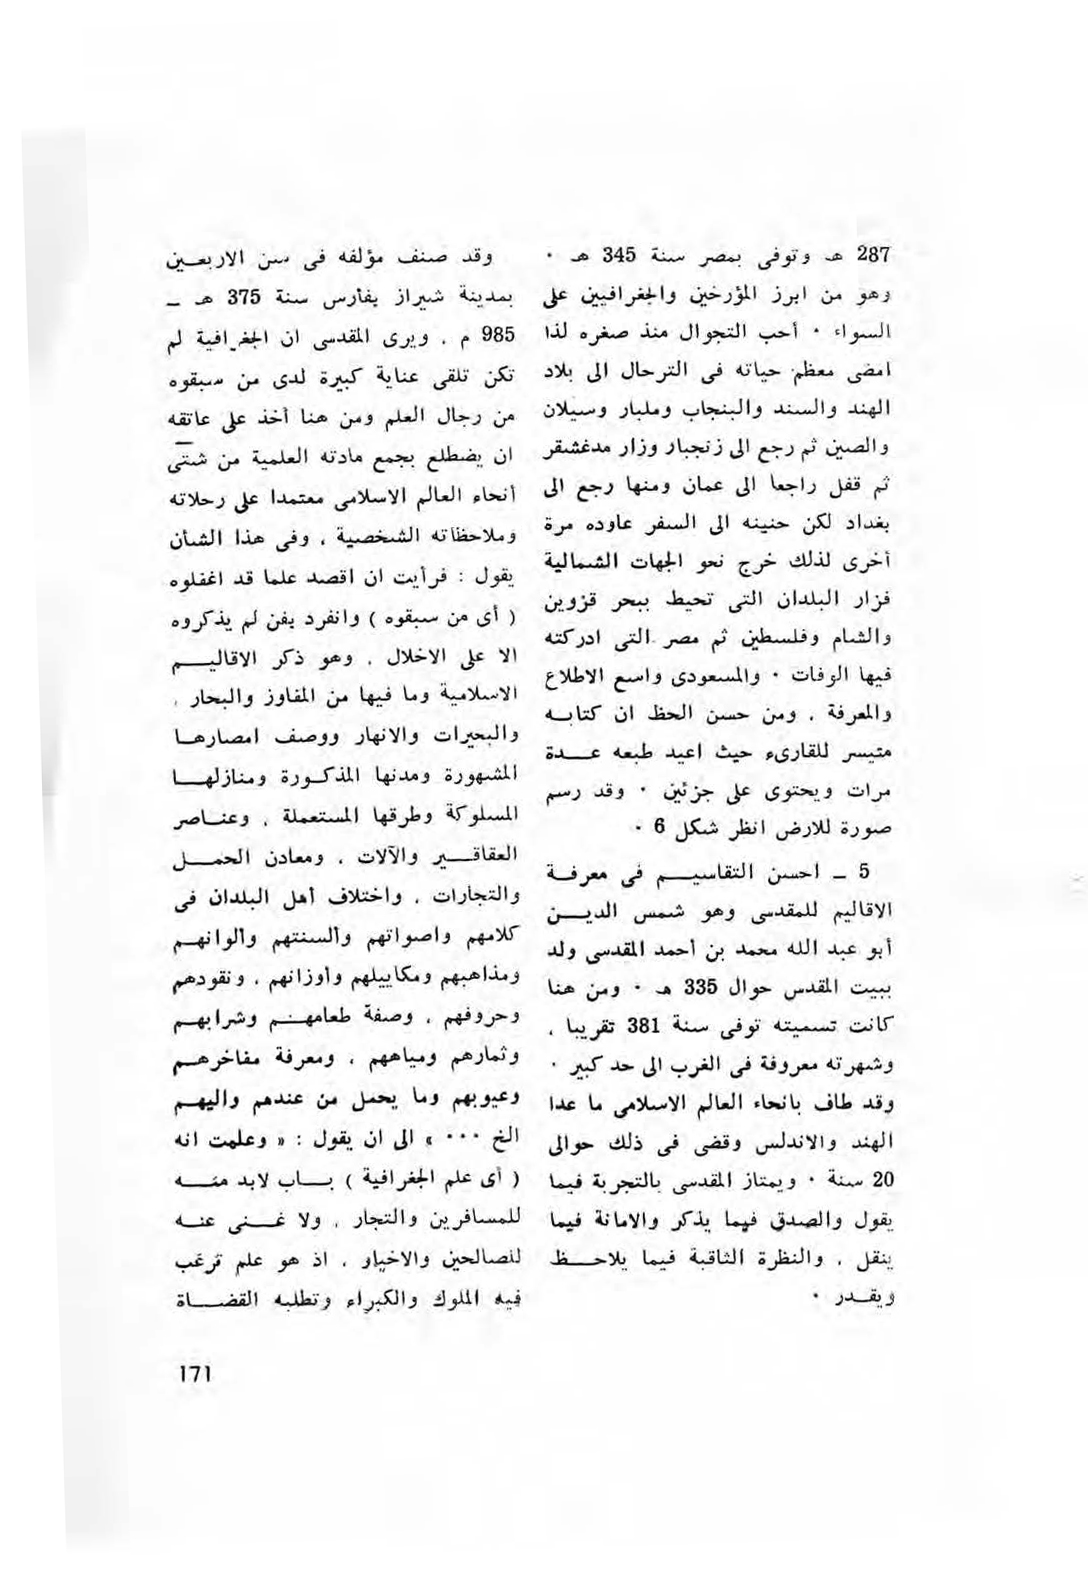 287 هـ وتوفى بمصر سنة 345 هـ ٠
وهو من ابرز المؤرخين والجغرافيين على
السواء ٠ أحب التجوال منذ صغره لذا
امضى معظم حياته فى الترحال الى بلاد
الهند والسند والبنجاب ومليار وسيلان
والصين ثم رجع الى زنجبار وزار مدغشقر
ثم قفل راجعا الى عمان ومنها رجع الى
بغداد لكن حنينه الى السفر عاوده مرة
أخرى لذلك خرج نحو الجهات الشمالية
فزار البلدان التى تحيط ببحر قزوين
والشام وفلسطين ثم مصر التى ادركته
فيها الوفات ٠ والمسعودى واسع الاطلاع
والمعرفة ، ومن حسن الحظ ان كتابه
متيسر للقارىء حيث اعيد طبعه عدة
مرات ويحتوى على جزئين ٠ وقد رسم
صورة للارض انظر شكل 6 ٠
5 ـ احسن التقاسيم فى معرفة
الاقاليم للمقدسى وهو شمس الدين
أبو عبد الله محمد بن أحمد المقدسى ولد
ببيت المقدس حوال 335 هـ ٠ ومن هنا
كانت تسميته توفى سنة 381 تقريبا ،
وشهرته معروفة فى الغرب الى حد كبير ٠
وقد طاف بانحاء العالم الاسلامى ما عدا
الهند والاندلس وقضى فى ذلك حوالى
20 سنة ٠ ويمتاز المقدسى بالتجربة فيما
يقول والصدق فيما يذكر والامانة فيما
ينقل ، والنظرة الثاقبة فيما يلاحظ
ويقدر ٠
وقد صنف مؤلفه فى سن الاربعين
بمدينة شيراز بفارس سنة 375 هـ ـ
985 م ، ويرى المقدسى ان الجغرافية لم
تكن تلقى عناية كبيرة لدى من سبقوه
من رجال العلم ومن هنا أخذ على عاتقه
ان يضطلع بجمع مادته العلمية من شتى
أنحاء العالم الاسلامى معتمدا على رحلاته
وملاحظاته الشخصية ، وفى هذا الشأن
يقول : فرأيت ان اقصد علما قد اغفلوه
( أى من سبقوه ) وانفرد بفن لم يذكروه
الا على الاخلال ، وهو ذكر الاقاليم
الاسلامية وما فيها من المفاوز والبحار ،
والبحيرات والانهار ووصف امصارها
المشهورة ومدنها المذكورة ومنازلها
المسلوكة وطرقها المستعملة ، وعناصر
العقاقير والآلات ، ومعادن الحمل
والتجارات ، واختلاف أهل البلدان فى
كلامهم واصواتهم وألسنتهم وألوانهم
ومذاهبهم ومكاييلهم وأوزانهم ، ونقودهم
وحروفهم ، وصفة طعامهم وشرابهم
وثمارهم ومياههم ، ومعرفة مفاخرهم
وعيوبهم وما يحمل من عندهم واليهم
الخ ٠٠٠ » الى ان يقول : « وعلمت انه
( أى علم الجغرافية ) باب لابد منه
للمسافرين والتجار ، ولا غنى عنه
للصالحين والاخيار ، اذ هو علم ترغب
فيه الملوك والكبراء وتطلبه القضاة
171